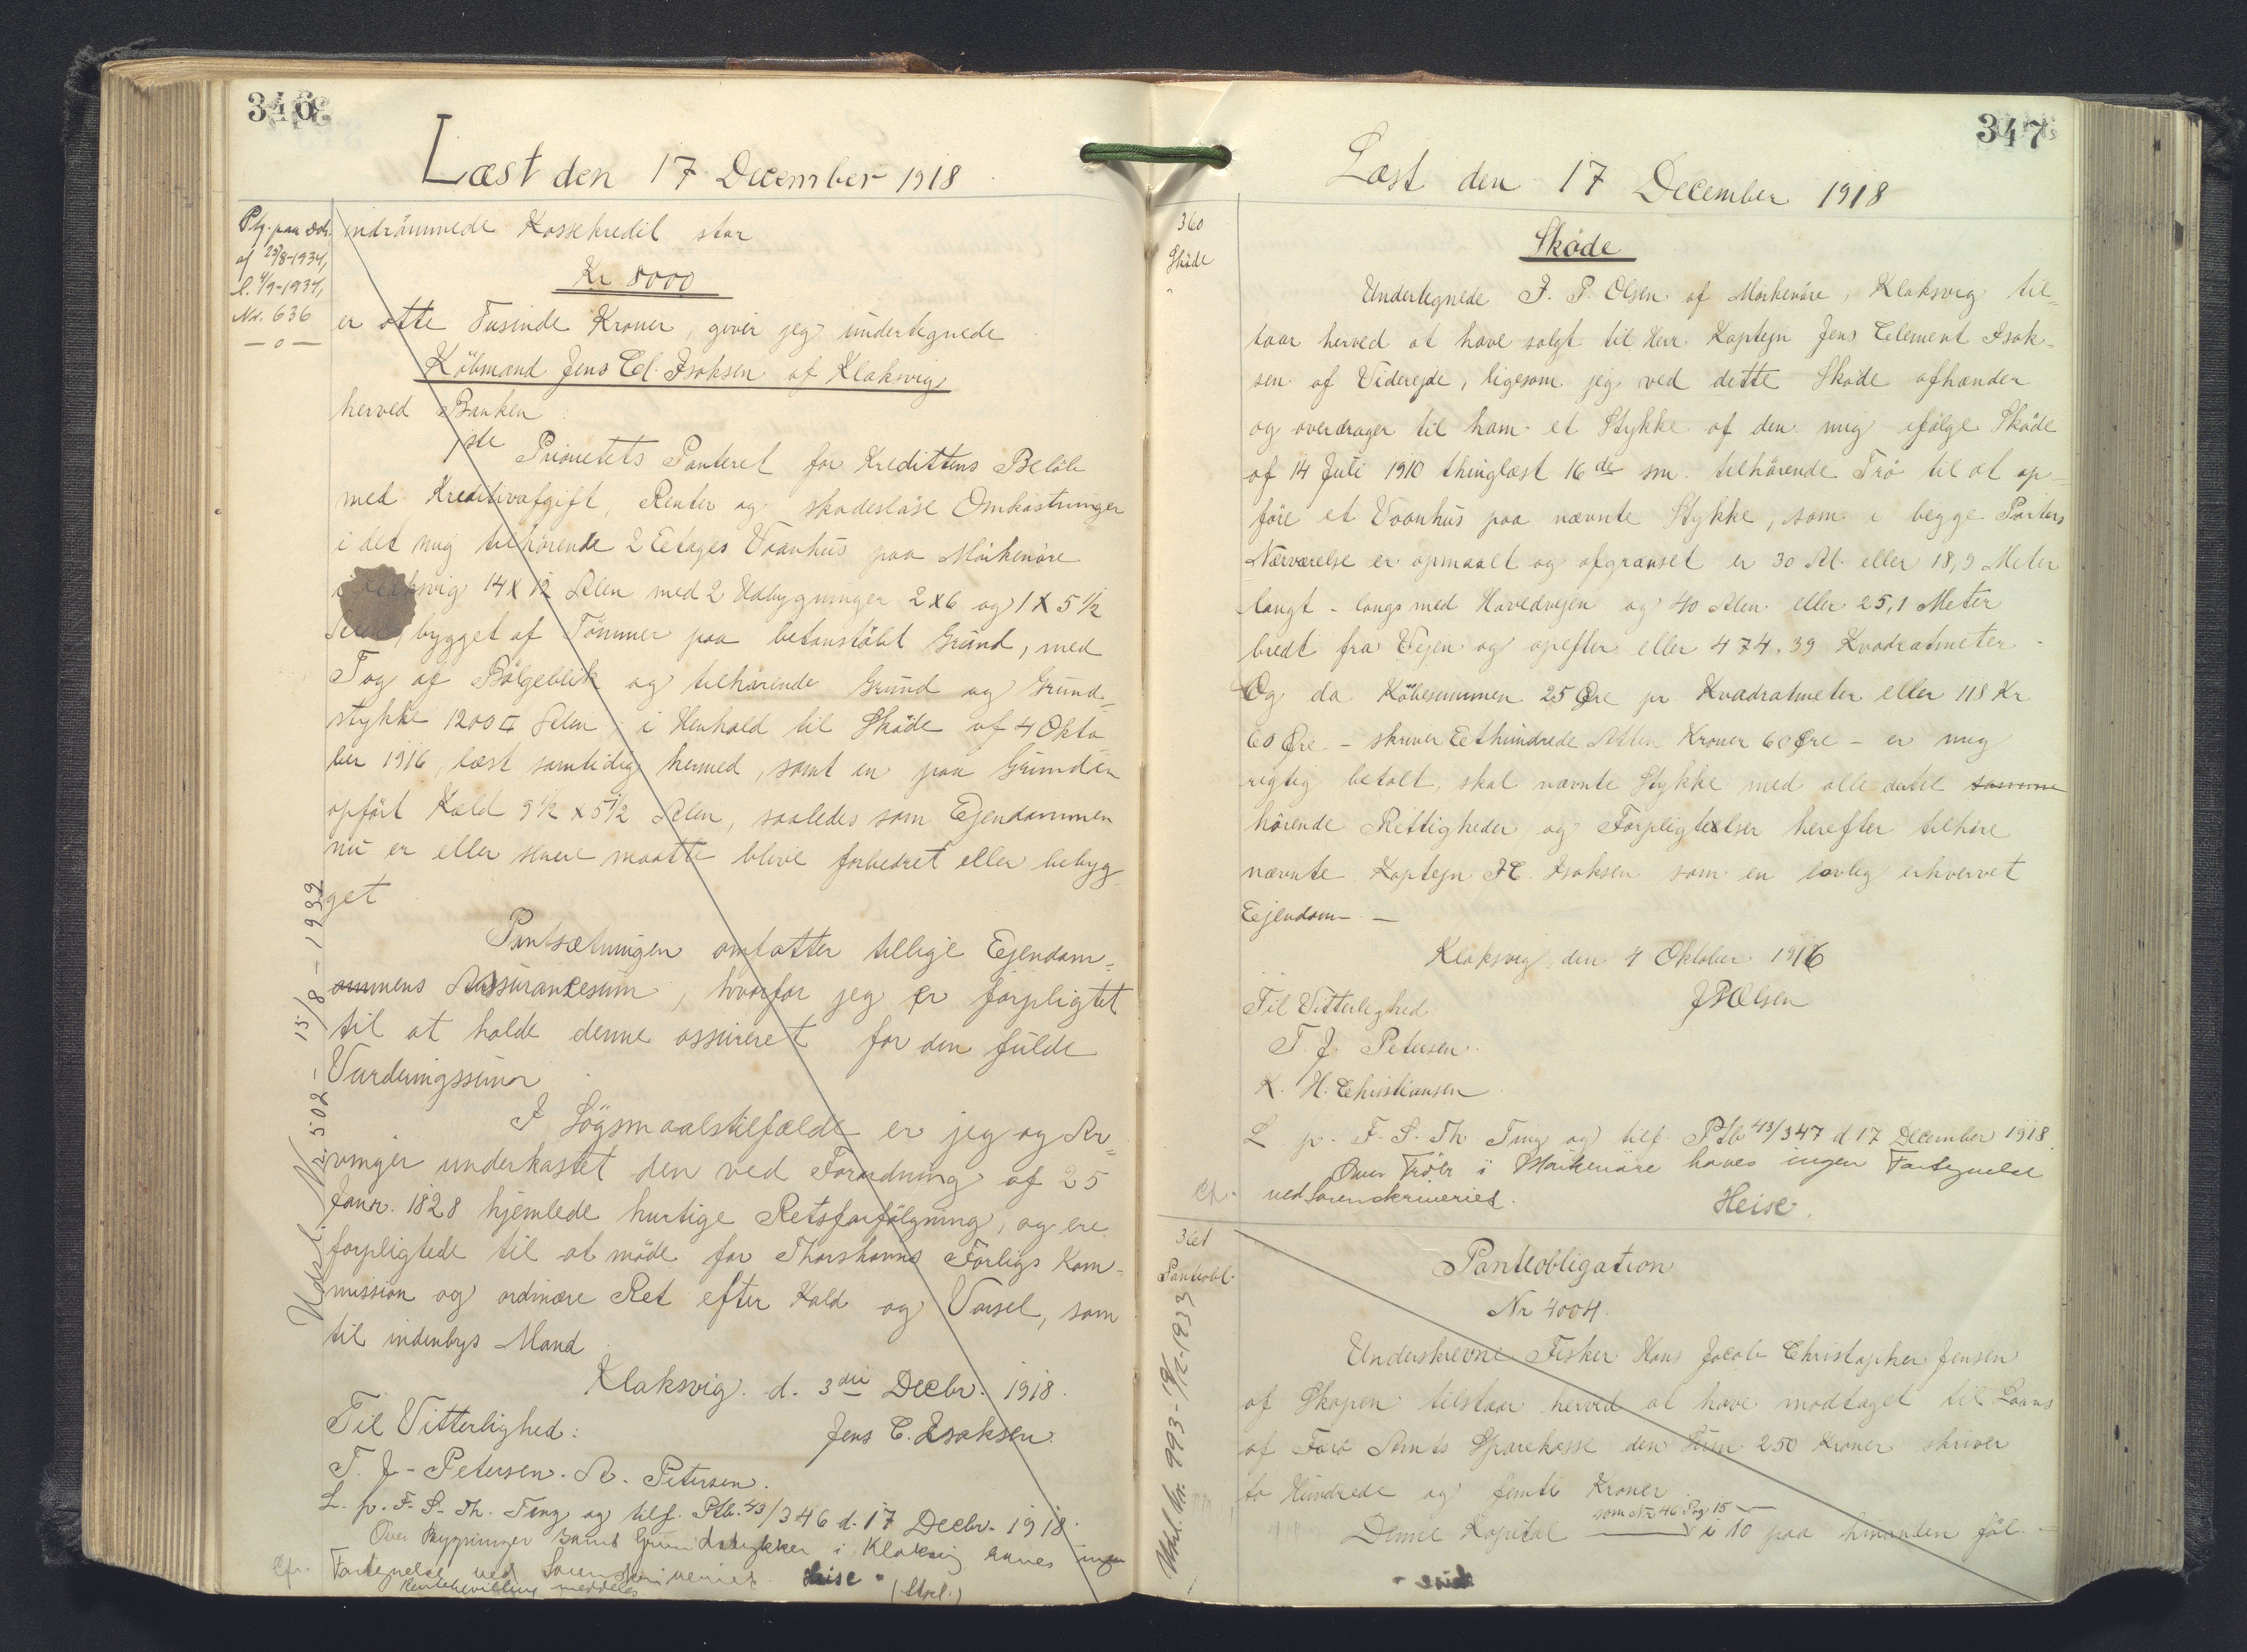 346
Læst den 17 December 1918
Ptg. paa Dok.
af 25/8-1934,
l. 4/9-1934,
Nr. 636
— o —
indrömmede Kassekredit stor
Kr 8000
er otte Tusinde Kroner, giver jeg undertegnede
Köbmand Jens Cl. Isaksen af Klaksvig
herved Banken
1ste Prioritets Panteret for Kredittens Beløb
med Kreditivafgift, Renter og skadesløse Omkostninger
i det mig tilhörende 2 Etages Vaanhus paa Mörkenöre
i Klaksvig 14 x 12 Alen med 2 Udbygninger 2 x 6 og 1 x 5 1/2
Alen, bygget af Tömmer paa betonstöbt Grund, med
Tag af Bölgeblik og tilhörende Grund og Grund=
stykke 1200 □ Alen, i Henhold til Sköde af 4 Okto
ber 1916, læst samtidig hermed, samt en paa Grunden
opfört Kæld 9 1/2 x 5 1/2 Alen, saaledes som Ejendommen
nu er eller senere maatte blive forbedret eller bebyg
get
Pantsætningen omfatter tillige Ejendom=
ommens Assurancesum, hvorfor jeg er forpligtet
til at holde denne assureret for den fulde
Vurderingssum
I Sögsmaalstilfælde er jeg og Ar=
vinger underkastet den ved Forordning af 25
Janr. 1828 hjemlede hurtige Retsforfölgning, og ere
forpligtede til at möde for Thorshavns Forligs Kom=
mission og ordinære Ret efter Kald og Varsel, som
til indenbys Mand
Klaksvig d. 3die Decbr. 1918.
Til Vitterlighed: Jens C. Isaksen.
T. J. Petersen. A. Petersen.
L. p. F. S. Th. Ting og tilf. Ptb. 43/346 d. 17 Decbr. 1918.
Over Bygninger samt Grundstykker i Klaksvig haves ingen
Cfr. Fortegnelse ved Sorenskriveriet. Heise
Rentebevilling meddeles. (Stpl.)
Udsl. Nr 502 - 15/8 - 1932
347
Læst den 17 December 1918
360
Sköde
Sköde
Undertegnede J. P. Olsen af Mörkenöre, Klaksvig til=
staar herved at have solgt til Herr Kaptejn Jens Clement Isak=
sen af Viderejde, ligesom jeg ved dette Sköde afhænder
og overdrager til ham et Stykke af den mig ifölge Sköde
af 14 Juli 1910 thinglæst 16de sm. tilhörende Trö til at op=
före et Vaanhus paa nævnte Stykke, som i begge Parters
Nærværelse er opmaalt og afgrænset er 30 Al. eller 18,9 Meter
langt - langs med Hovedvejen og 40 Alen eller 25,1 Meter
bredt fra Vejen og opefter eller 474,39 Kvadratmeter -
Og da Köbesummen 25 Øre pr Kvadratmeter eller 118 Kr
60 Øre - skriver Eethundrede Atten Kroner 60 Øre - er mig
rigtig betalt, skal nævnte Stykke med alle dertil samme
hörende Rettigheder og Forpligtelser herefter tilhöre
nævnte Kaptejn J.C. Isaksen som en lovlig erhvervet
Eejendom —
Klaksvig, den 4 Oktober 1916
Til Vitterlighed J P Olsen
T J. Petersen.
K. H. Christiansen
L p. F. S. Th. Ting og tilf. Ptb 43/347 d. 17 December 1918
Over Tröer i Mörkenöre haves ingen Fortegnelse
Cfr. ved Sorenskriveriet. Heise.
361
Panteobl.
Panteobligation
Nr 4004.
Underskrevne Fisker Hans Jacob Christopher Jensen
af Skopen tilstaar herved at have modtaget til Laans
af Færø Amts Sparekasse den Sum 250 Kroner skriver
to Hundrede og femti Kroner
som Nr 46 Pag 15
Denne Kapital i 10 paa hinanden föl =
Udsl. Nr. 993 - 19/12-1933